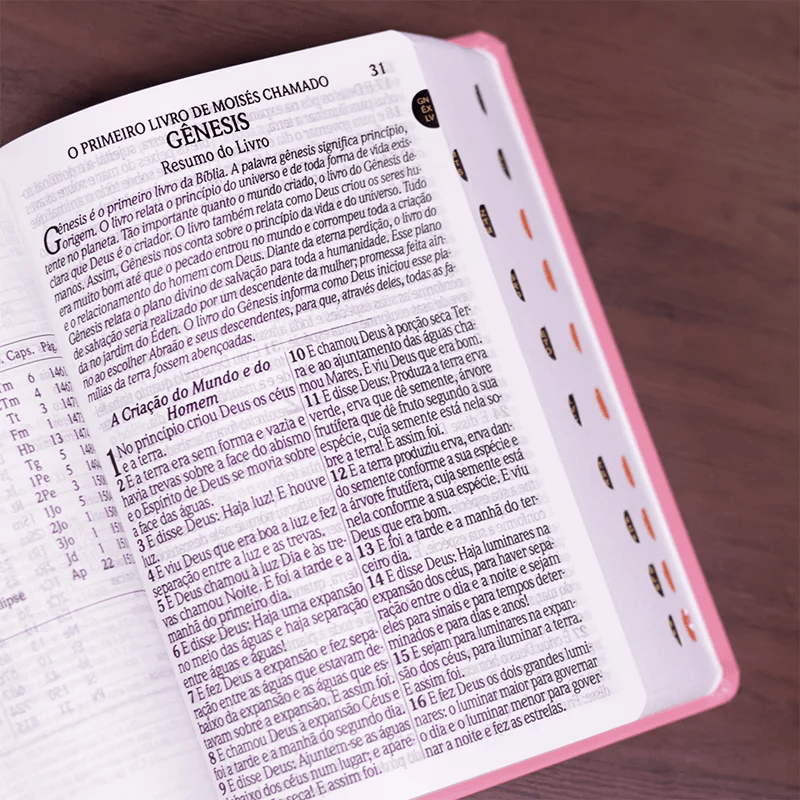 31
O PRIMEIRO LIVRO DE MOISÉS CHAMADO
GÊNESIS
Resumo do Livro
Gênesis é o primeiro livro da Bíblia. A palavra gênesis significa princípio,
origem. O livro relata o princípio do universo e de toda forma de vida exis-
tente no planeta. Tão importante quanto o mundo criado, o livro do Gênesis de-
clara que Deus é o criador. O livro também relata como Deus criou os seres hu-
manos. Assim, Gênesis nos conta sobre o princípio da vida e do universo. Tudo
era muito bom até que o pecado entrou no mundo e corrompeu toda a criação
e o relacionamento do homem com Deus. Diante da eterna perdição, o livro do
Gênesis relata o plano divino de salvação para toda a humanidade. Esse plano
de salvação seria realizado por um descendente da mulher; promessa feita ain-
da no jardim do Éden. O livro do Gênesis informa como Deus iniciou esse pla-
no ao escolher Abraão e seus descendentes, para que, através deles, todas as fa-
mílias da terra fossem abençoadas.
A Criação do Mundo e do
Homem
1 No princípio criou Deus os céus
e a terra.
2 E a terra era sem forma e vazia e
havia trevas sobre a face do abismo
e o Espírito de Deus se movia sobre
a face das águas.
3 E disse Deus: Haja luz! E houve
luz.
4 E viu Deus que era boa a luz e fez
separação entre a luz e as trevas.
5 E Deus chamou à luz Dia e às tre-
vas chamou Noite. E foi a tarde e a
manhã do primeiro dia.
6 E disse Deus: Haja uma expansão
no meio das águas e haja separação
entre águas e águas!
7 E fez Deus a expansão e fez sepa-
ração entre as águas que estavam de-
baixo da expansão e as águas que es-
tavam sobre a expansão. E assim foi.
8 E chamou Deus à expansão Céus e
foi a tarde e a manhã do segundo dia.
9 E disse Deus: Ajuntem-se as águas
debaixo dos céus num lugar; e apare-
seca! E assim foi.
10 E chamou Deus à porção seca Ter-
ra e ao ajuntamento das águas cha-
mou Mares. E viu Deus que era bom.
11 E disse Deus: Produza a terra erva
verde, erva que dê semente, árvore
frutífera que dê fruto segundo a sua
espécie, cuja semente está nela so-
bre a terra! E assim foi.
12 E a terra produziu erva, erva dan-
do semente conforme a sua espécie e
a árvore frutífera, cuja semente está
nela conforme a sua espécie. E viu
Deus que era bom.
13 E foi a tarde e a manhã do ter-
ceiro dia.
14 E disse Deus: Haja luminares na
expansão dos céus, para haver sepa-
ração entre o dia e a noite e sejam
eles para sinais e para tempos deter-
minados e para dias e anos!
15 E sejam para luminares na expan-
são dos céus, para iluminar a terra.
E assim foi.
16 E fez Deus os dois grandes lumi-
nares: o luminar maior para governar
o dia e o luminar menor para gover-
nar a noite e fez as estrelas.
Caps. Pág.
Tm 6
Tm 4
Tt 3
Fm 1
Hb 13
Tg 5
1Pe 5
2Pe 3
1Jo 5
2Jo 1
3Jo 1
Jd 1
Ap 22
GN
ÊX
LV